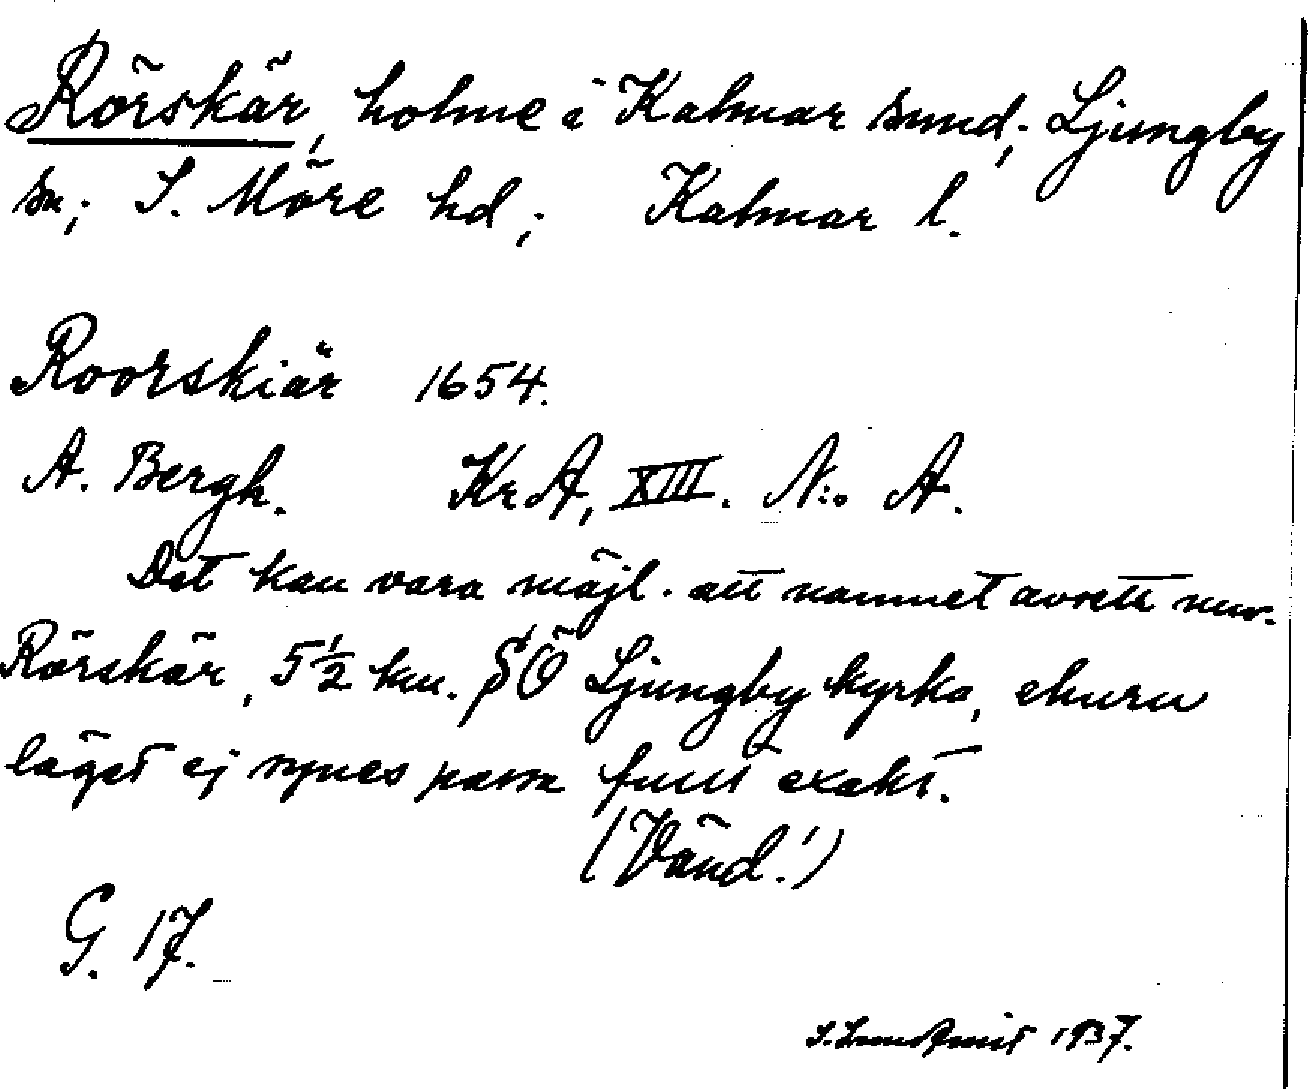 Rörskär, holme i Kalmar sund; Ljungby
sn; S. Möre hd; Kalmar l.
Roorskiär 1654.
A. Bergh. KrA, XIII. N:o A.
Det kan vara möjl. att namnet avsett nuv.
Rörskär, 5½ km. SÖ Ljungby kyrka, ehuru
läget ej synes passa fullt exakt.
(Vänd!)
G. 17.
S. Lundqvist 1937.